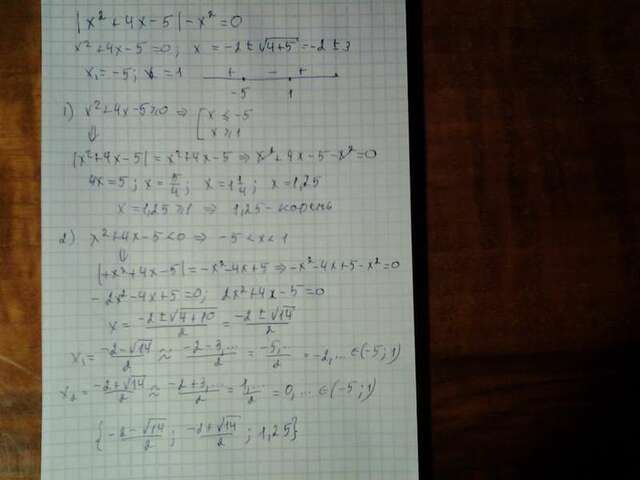 |x² + 4x - 5| - x² = 0
x² + 4x - 5 = 0; x = -2 ± √(4+5) = -2 ± 3
x₁ = -5; x = 1
+ - +
-5 1
1) x² + 4x - 5 ≥ 0 ⇒ [ x ≤ -5
x ≥ 1
⇓
|x² + 4x - 5| = x² + 4x - 5 ⇒ x² + 4x - 5 - x² = 0
4x = 5; x = 5/4; x = 1 1/4; x = 1,25
x = 1,25 ≥ 1 ⇒ 1,25 - корень
2) x² + 4x - 5 < 0 ⇒ -5 < x < 1
⇓
|+x² + 4x - 5| = -x² - 4x + 5 ⇒ -x² - 4x + 5 - x² = 0
-2x² - 4x + 5 = 0; 2x² + 4x - 5 = 0
x = (-2 ± √(4+10))/2 = (-2 ± √14)/2
x₁ = (-2-√14)/2 ≈ (-2-3,...)/2 = (-5,...)/2 = -2,... ∈ (-5; 1)
x₂ = (-2+√14)/2 ≈ (-2+3,...)/2 = (1,...)/2 = 0,... ∈ (-5; 1)
{(-2-√14)/2; (-2+√14)/2; 1,25}